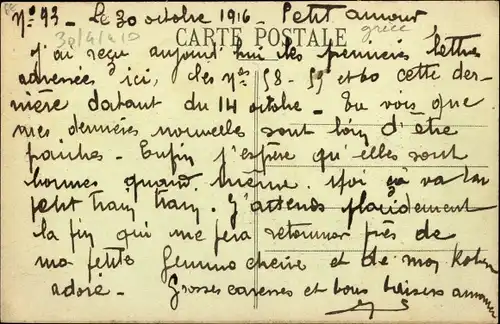 N° 93 - Le 30 octobre 1916 - Petit amour
CARTE POSTALE
grèce
j'ai reçu aujourd'hui les premières lettres
adressées ici, les nos 58 - 59 et 60 cette der-
nière datant du 14 octobre - Tu vois que
mes dernières nouvelles sont loin d'être
fraiches - Enfin j'espère qu'elles sont
bonnes quand même. Moi ça va son
petit tran tran. J'attends placidement
la fin qui me fera retourner près de
ma petite femme chérie et de mon
adoré - Grosses caresses et bons baisers